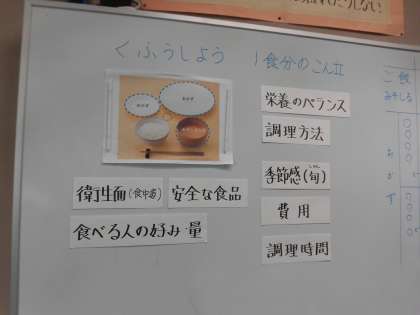 くふうしよう 1食分のこん立
栄養のバランス
調理方法
季節感(旬)
費用
調理時間
衛生面(食中毒)
安全な食品
食べる人の好み 量
ご飯
みそしる
おかず